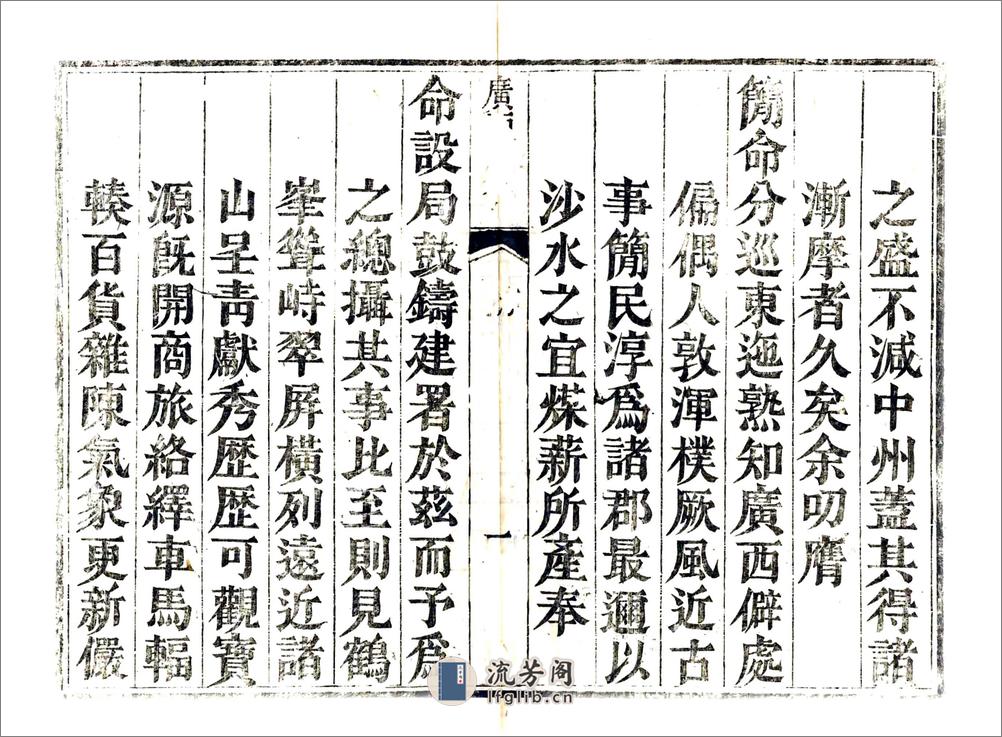 之盛不減中州蓋其得諸
漸摩者久矣余叨膺
簡命分巡東迤熟知廣西僻處
偏偶人敦渾樸厥風近古
事簡民淳爲諸郡最邇以
沙水之宜煤薪所產奉
廣
一
命設局鼓鑄建署於茲而予爲
之總攝其事比至則見鶴
峯聳峙翠屏橫列遠近諸
山呈靑獻秀歷歷可觀寶
源旣開商旅絡繹車馬輻
輳百貨雜陳氣象更新儼
流芳阁
lfglib.cn